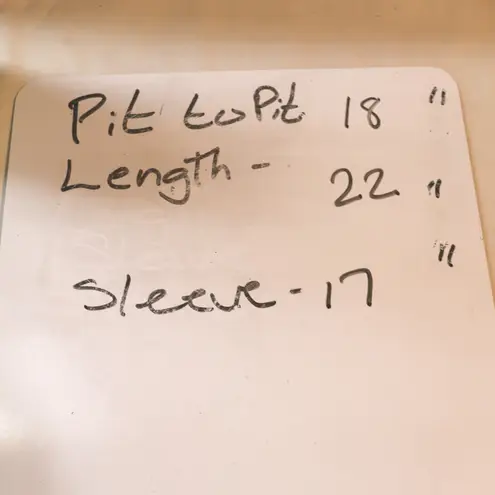 Pit to Pit 18 "
Length - 22 "
Sleeve - 17 "